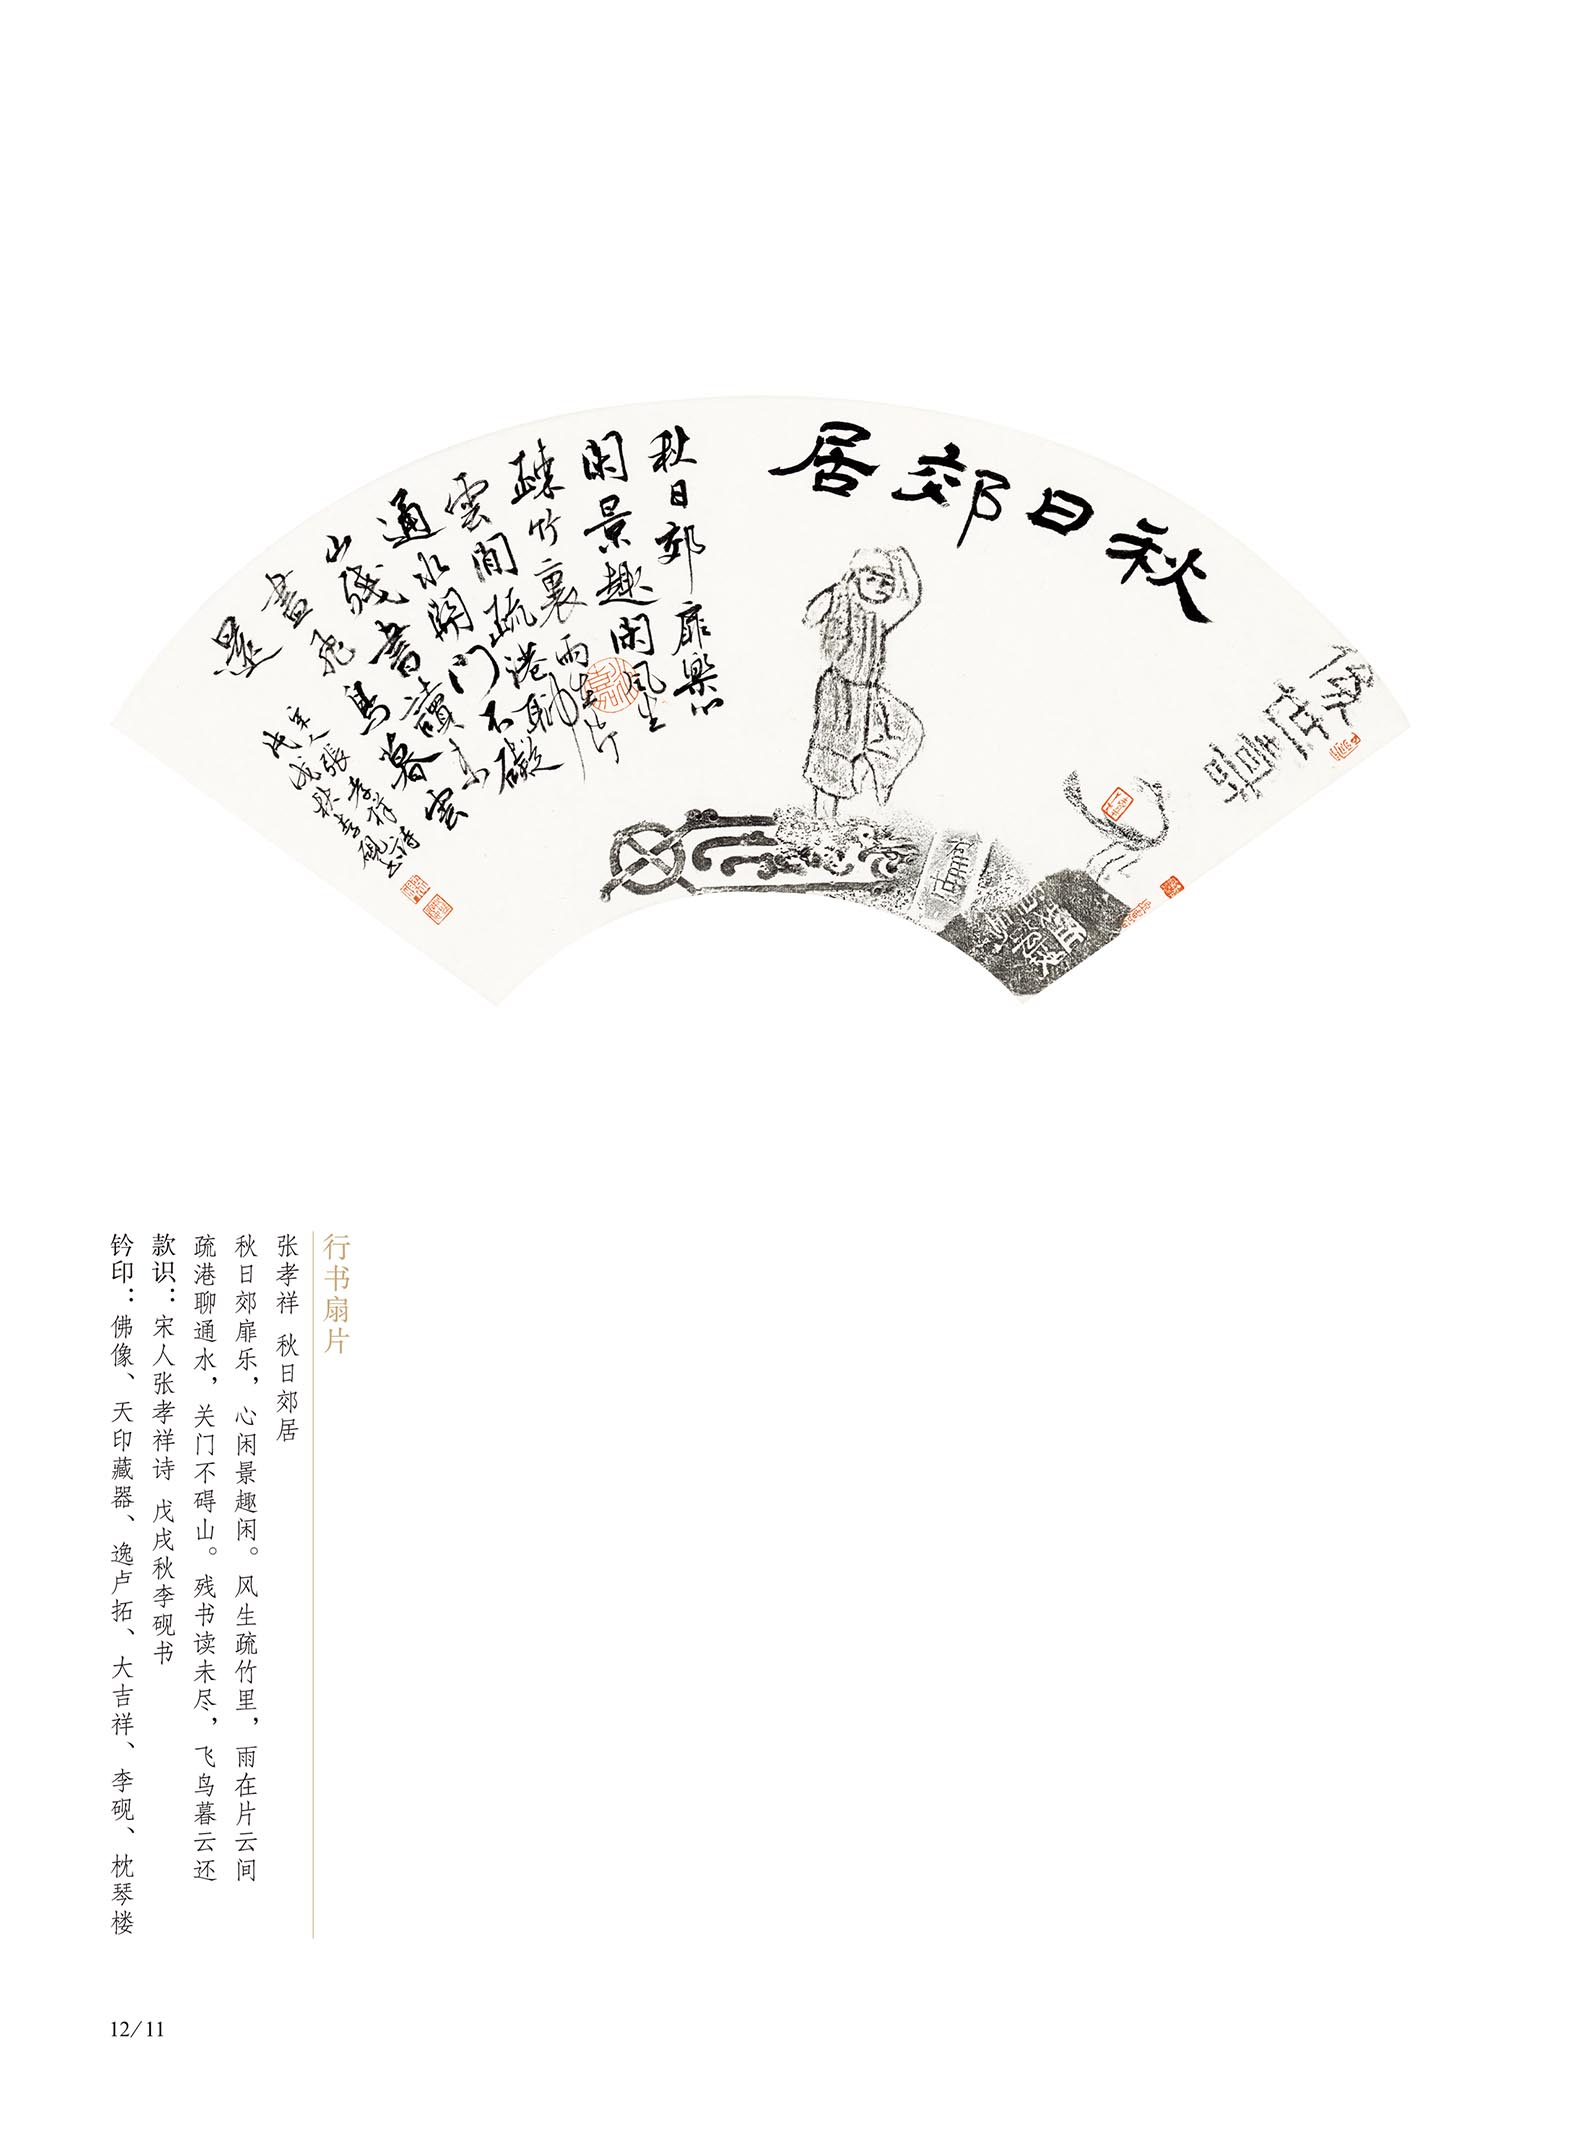 秋日郊居
秋日郊扉樂心
閑景趣閑風生
疎竹裏雨在片
雲間疏港聊
通水關門不礙
山殘書讀未
盡飛鳥暮雲
還
宋人張孝祥詩
戊戌秋李硯書
行书扇片
张孝祥 秋日郊居
秋日郊扉乐，心闲景趣闲。风生疏竹里，雨在片云间
疏港聊通水，关门不碍山。残书读未尽，飞鸟暮云还
款识：宋人张孝祥诗 戊戌秋李砚书
钤印：佛像、天印藏器、逸卢拓、大吉祥、李砚、枕琴楼
12/11